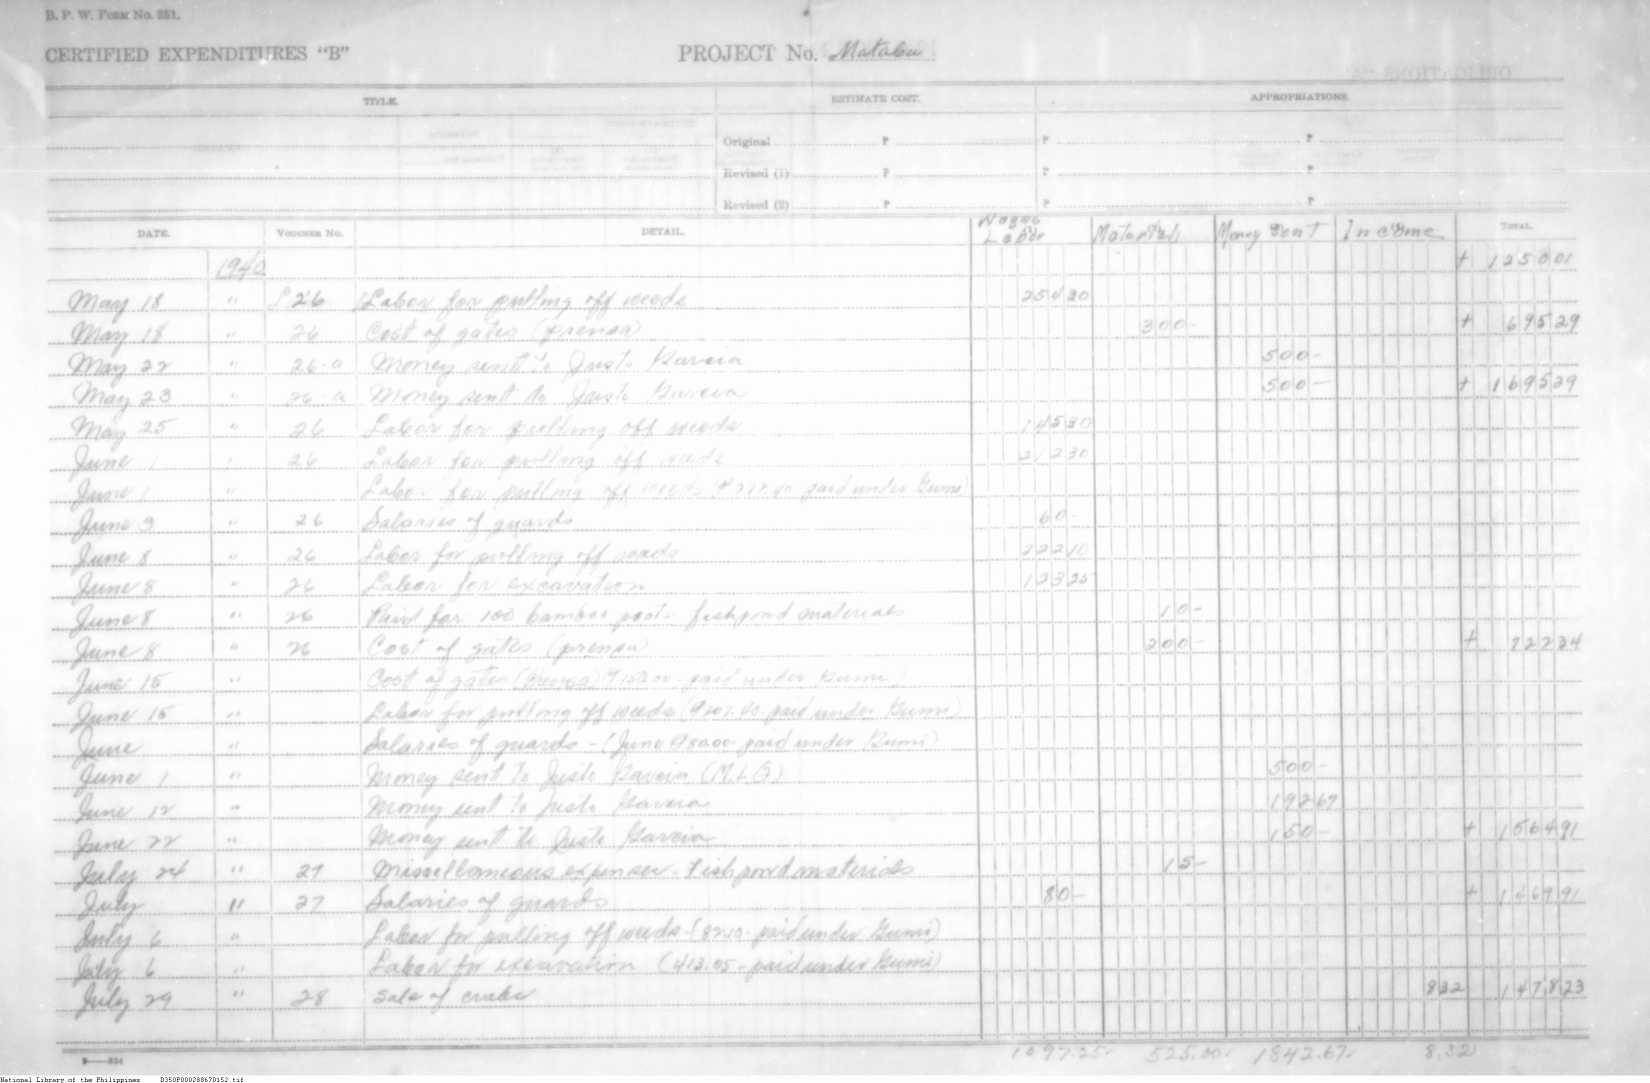 B. P. W. Form No. 251.
CERTIFIED EXPENDITURES "B" PROJECT No. Matabu
TITLE. ESTIMATE COST. APPROPRIATIONS.
Original ₱ ₱ ₱
Revised (1) ₱ ₱ ₱
Revised (2) ₱ ₱ ₱
DATE. Voucher No. DETAIL. Wages Labor Materials Money Sent Income TOTAL.
1940 + 1250 01
May 18 " 26 Labor for pulling off weeds 254 20
May 18 " 26 Cost of gates (prensa) 300- + 695 29
May 22 " 26-a Money sent to Justo Garcia 500-
May 23 " 26-a Money sent to Justo Garcia 500- + 1695 29
May 25 " 26 Labor for pulling off weeds 145 20
June 1 " 26 Labor for pulling off weeds 212 30
June 1 " Labor for pulling off weeds paid under Gumi)
June 3 " 26 Salaries of guards 60-
June 8 " 26 Labor for pulling off weeds 222 10
June 8 " 26 Labor for excavation 123 25
June 8 " 26 Paid for 100 bamboo posts fishpond materials 10-
June 8 " 26 Cost of gates (prensa) 200- + 722 34
June 15 " Cost of gates (Prensa) paid under Gumi)
June 15 " Labor for pulling off weeds (₱207.40 paid under Gumi)
June " Salaries of guards - (June ₱80.00 paid under Gumi)
June 1 " Money sent to Justo Garcia (M.L.G.) 500-
June 12 " Money sent to Justo Garcia 192 67
June 22 " Money sent to Justo Garcia 150- + 1564 91
July 24 " 27 Miscellaneous expenses - Fishpond materials 15-
July " 27 Salaries of guards 80- + 1469 91
July 6 " Labor for pulling off weeds - (82.10 - paid under Gumi)
July 6 " Labor for excavation (413.05 - paid under Gumi)
July 29 " 28 Sale of crabs 8 32 1478 23
1097.25 525.00 1842.67 8.32
9—324
National Library of the Philippines D350P000288670152.tif